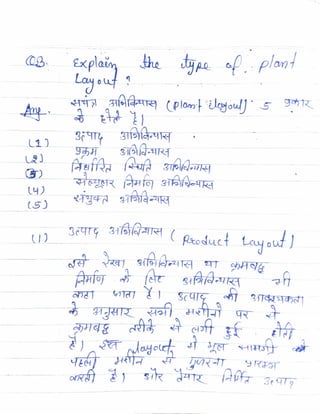 Q3. Explain the type of plant
Layout?
Ans. संयंत्र अभिविन्यास (plant layout) 5 प्रकार
के होते हैं।
(1) उत्पाद अभिविन्यास
(2) प्रक्रम अभिविन्यास
(3) निर्धारित स्थिति अभिविन्यास
(4) सेल्यूलर निर्माण अभिविन्यास
(5) संयुक्त अभिविन्यास
(1) उत्पाद अभिविन्यास (Product Layout)
इसे रेखा अभिविन्यास या क्रमबद्ध
निर्माण के लिए अभिविन्यास भी
कहा जाता है। उत्पाद की आवश्यकता
के अनुसार सभी मशीनों पर से
क्रमबद्ध तरीके से लगी हुई होती
है। इस layout में मूल सामग्री
पहली मशीन से गुजरना प्रारम्भ
करती है। और तैयार निर्मित उत्पाद